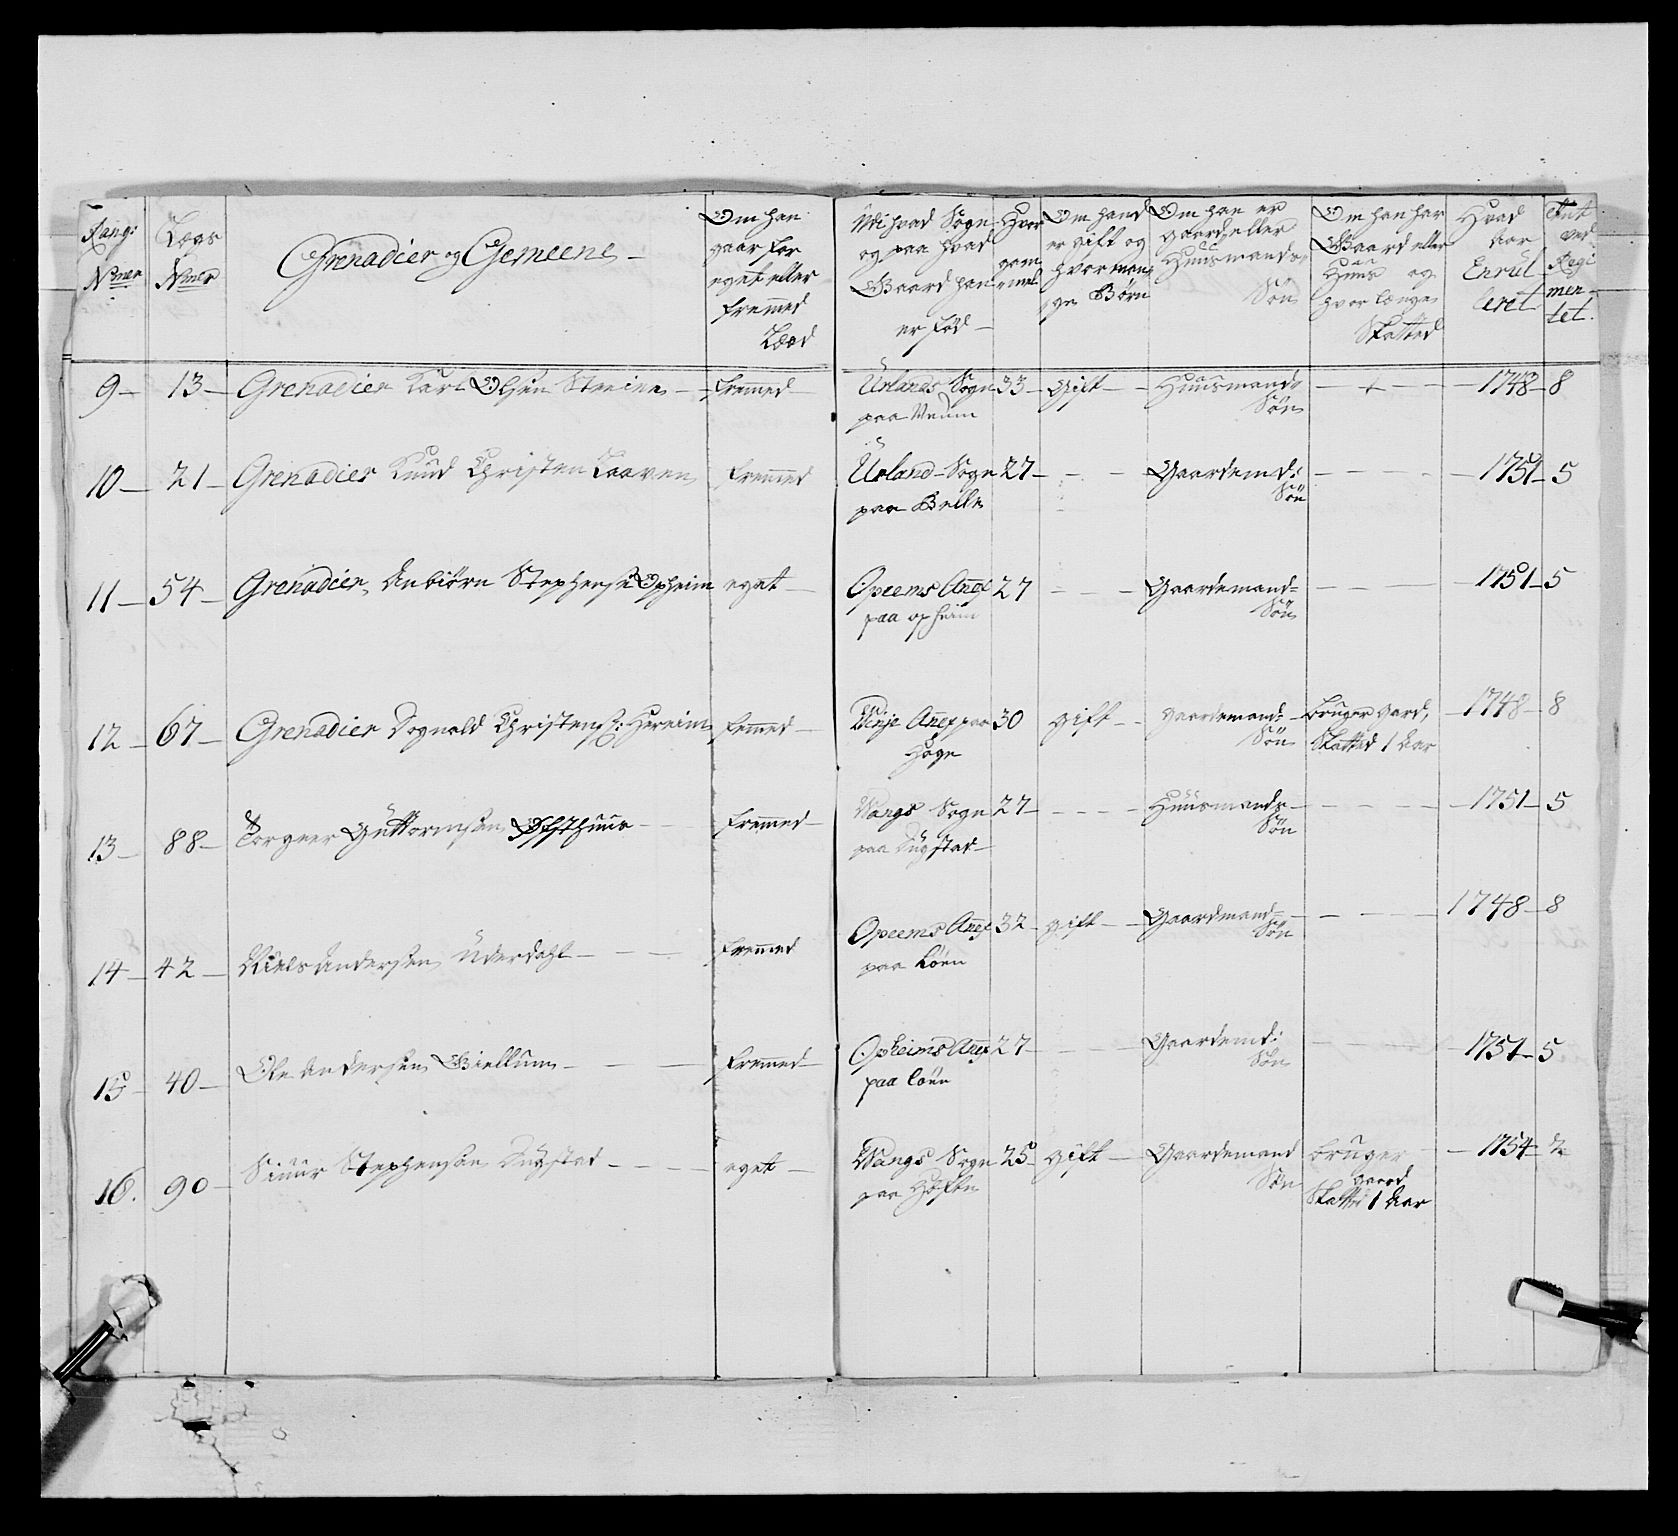 Rang: N:mer
Lægs N:mer
Grenadier og Gemeene
Om han gaar for eget eller fremmed Læed
Udi hvad Sogn og paa hvad Gaard han er Fød
Hvor gammel
Om hand er gift og hvor mange Børn
Om han er gaard eller Huusmands Søn
Om han har Gaard eller Huus og hvor længe Skatted
Hvad Aar Enrulleret
Tient ved Regimentet.
9 13 Grenadier Karl Olsen fremed Urlands Sogn paa 33 Gift Huusmands Søn 1748 8
10 21 Grenadier Knud Christen fremmed Urland Sogn paa Belle 27 Gaardemd: Søn 1751 5
11 54 Grenadier Anbiörn Stephens: Opheim eget Opeems Anex paa opheim 27 Gaardemand Søn 1751 5
12 67 Grenadier Rognald Christens: Hereim fremmed Vinje Anex paa Hage 30 gift gaardemand Søn bruger gard, Skatted 1 Aar 1748 8
13 88 Torgeer Guttormsen Ofsthuus fremmed Wangs Sogn paa Dugstad 27 Huusmands Søn 1751 5
14 42 Niels Andersen Uderdahl fremmed Opeems Anex paa Löen 32 gift Gaardmand Søn 1748 8
15 40 Ole Andersen Giellum fremmed Opheims Anex paa Löen 27 Gaardemd: Søn 1751 5
16. 90 Siuur Stephensen Dugstad eget Wangs Sogn paa 25 gift Gaardemand Søn bruger gaard Skatted 1 Aar 1754 2